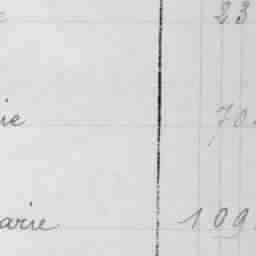 23
ie 70
arie 109